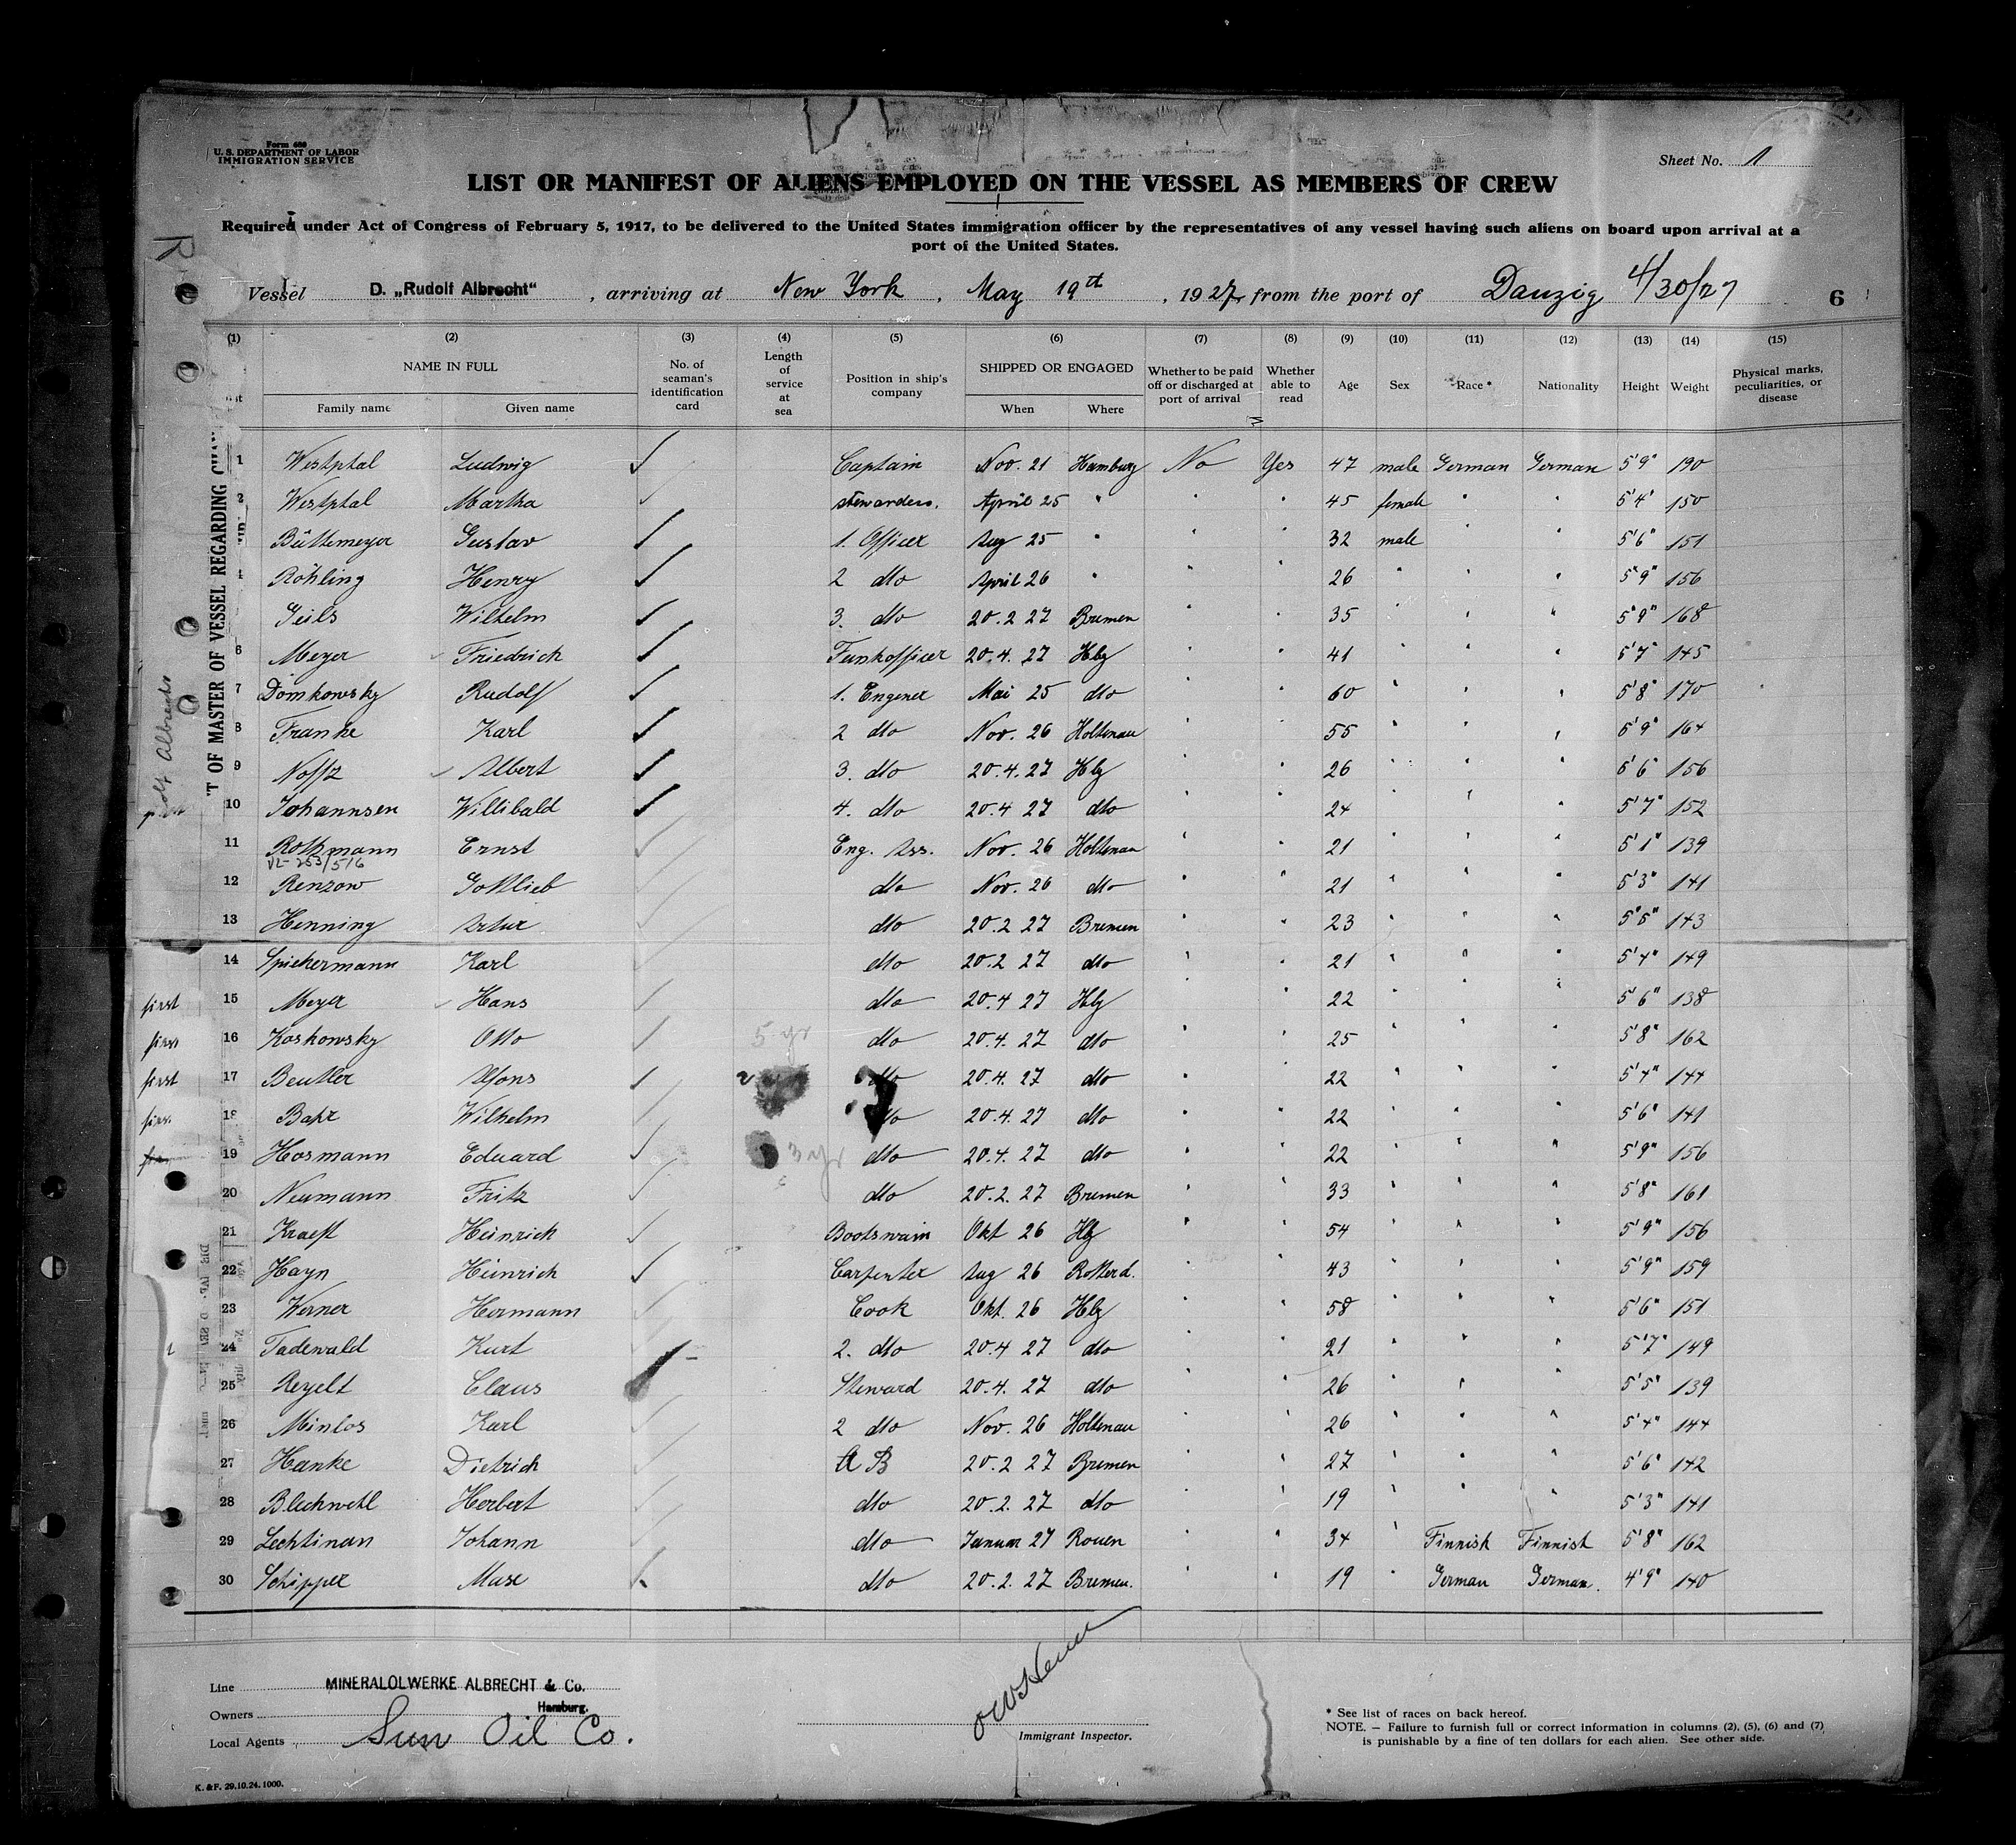 Form 689
U. S. DEPARTMENT OF LABOR
IMMIGRATION SERVICE
Sheet No. 1
LIST OR MANIFEST OF ALIENS EMPLOYED ON THE VESSEL AS MEMBERS OF CREW
Required under Act of Congress of February 5, 1917, to be delivered to the United States immigration officer by the representatives of any vessel having such aliens on board upon arrival at a
port of the United States.
Vessel D. „Rudolf Albrecht“, arriving at New York, May 19th, 1927, from the port of Danzig 4/30/27 6
(1) (2) (3) (4) (5) (6) (7) (8) (9) (10) (11) (12) (13) (14) (15)
NAME IN FULL No. of seaman's identification card Length of service at sea Position in ship's company SHIPPED OR ENGAGED Whether to be paid off or discharged at port of arrival Whether able to read Age Sex Race* Nationality Height Weight Physical marks, peculiarities, or disease
Family name Given name When Where
T OF MASTER OF VESSEL REGARDING
1 Westphal Ludwig Captain Nov. 21 Hamburg No Yes 47 male German German 5'9" 190
2 Westphal Martha stewardess. April 25 " " " 45 female " 5'4" 150
Büttemeyer Gustav 1. Officer Aug 25 " " " 32 male " " 5'6" 151
Röhling Henry 2 dto April 26 " " " 26 " " " 5'9" 156
Geils Wilhelm 3. dto 20.2 27 Bremen " " 35 " " " 5'9" 168
6 Meyer Friedrich Funkofficer 20.4. 27 Hbg " " 41 " " " 5'7" 145
7 Domkowsky Rudolf 1. Engener Mai 25 dto " " 60 " " " 5'8" 170
8 Franke Karl 2 dto Nov. 26 Holtenau " " 55 " " " 5'9" 164
9 Noffz Albert 3. dto 20.4.27 Hbg " " 26 " " " 5'6" 156
10 Johannsen Willibald 4. dto 20.4 27 dto " " 24 " " " 5'7" 152
11 Rothmann Ernst Eng. Ass. Nov. 26 Holtenau " " 21 " " " 5'1" 139
VL-253/516
12 Renzow Gottlieb dto Nov. 26 dto " " 21 " " " 5'3" 141
13 Henning Artur dto 20.2 27 Bremen " " 23 " " " 5'5" 143
14 Spiekermann Karl dto 20.2 27 dto " " 21 " " " 5'4" 149
first 15 Meyer Hans dto 20.4 27 Hbg " " 22 " " " 5'6" 138
first 16 Koskowsky Otto 5 yr dto 20.4. 27 dto " " 25 " " " 5'8" 162
first 17 Beutler Alfons dto 20.4. 27 dto " " 22 " " " 5'4" 144
first 18 Bahr Wilhelm dto 20.4.27 dto " " 22 " " " 5'6" 141
19 Hosmann Eduard 3 yr dto 20.4. 27 dto " " 22 " " " 5'9" 156
20 Neumann Fritz dto 20.2. 27 Bremen " " 33 " " " 5'8" 161
21 Kraeft Heinrich Bootswain Okt 26 Hbg " " 54 " " " 5'9" 156
22 Hayn Heinrich Carpenter Aug 26 Rotterd. " " 43 " " " 5'9" 159
23 Werner Hermann Cook Okt. 26 Hbg " " 58 " " " 5'6" 151
24 Tadewald Kurt 2. dto 20.4 27 dto " " 21 " " " 5'7" 149
25 Reyelt Claus Steward 20.4. 27 dto " " 26 " " " 5'5" 139
26 Minlos Karl 2 dto Nov. 26 Holtenau " " 26 " " " 5'4" 144
27 Hanke Dietrich A B 20.2 27 Bremen " " 27 " " " 5'6" 142
28 Blechwehl Herbert dto 20.2. 27 dto " " 19 " " " 5'3" 141
29 Lechtinan Johann dto Januar 27 Rouen " " 34 " Finnish Finnish 5'8" 162
30 Schipper Max dto 20.2.27 Bremen. " " 19 " German German. 4'9" 140
Line MINERALOLWERKE ALBRECHT & Co.
Hamburg.
Owners
Local Agents Sun Oil Co.
Immigrant Inspector.
* See list of races on back hereof.
NOTE. — Failure to furnish full or correct information in columns (2), (5), (6) and (7)
is punishable by a fine of ten dollars for each alien. See other side.
K. & F. 29.10.24. 1000.